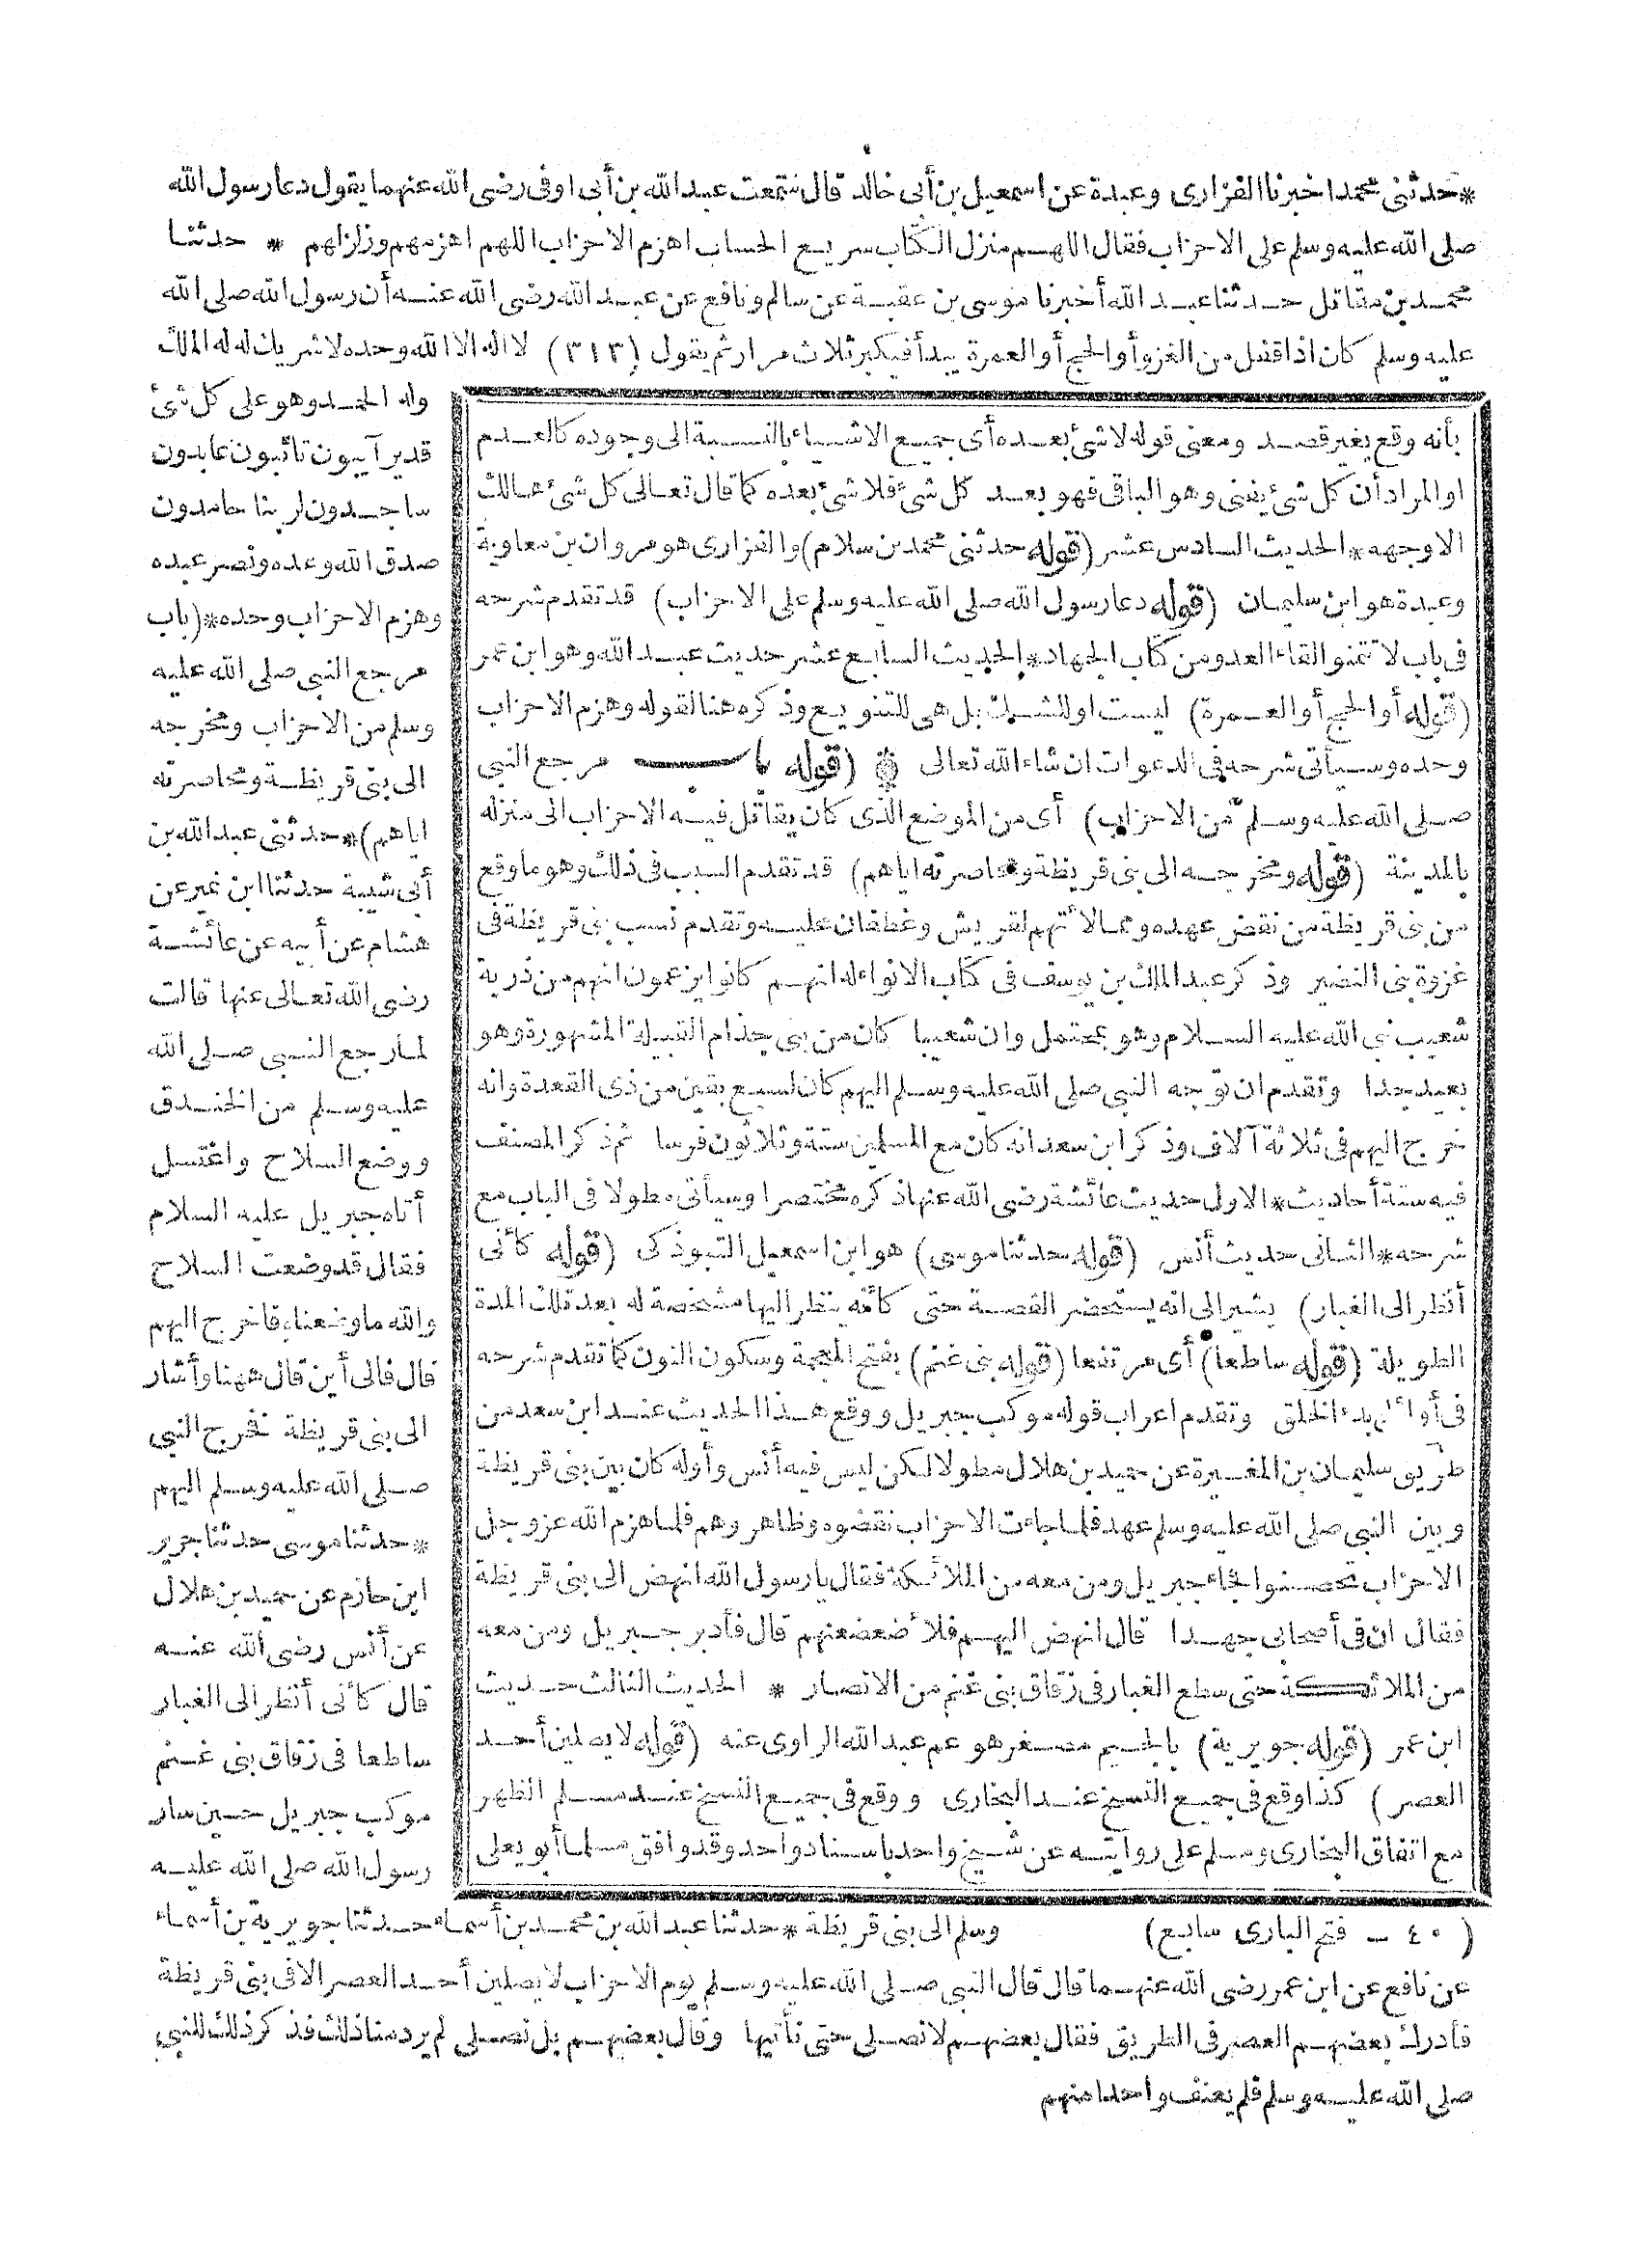 *حدثنى محمد اخبرنا الفزارى وعبدة عن اسمعيل بن أبى خالد قال سمعت عبد الله بن أبى اوفى رضى الله عنهما يقول دعا رسول الله
صلى الله عليه وسلم على الاحزاب فقال اللهم منزل الكتاب سريع الحساب اهزم الاحزاب اللهم اهزمهم وزلزلهم * حدثنا
محمد بن مقاتل حدثنا عبد الله أخبرنا موسى بن عقبة عن سالم ونافع عن عبد الله رضى الله عنه أن رسول الله صلى الله
عليه وسلم كان اذا قفل من الغزو أو الحج أو العمرة يبدأ فيكبر ثلاث مرار ثم يقول (٣١٣) لا اله الا الله وحده لا شريك له له الملك
وله الحمد وهو على كل شئ
قدير آيبون تائبون عابدون
ساجدون لربنا حامدون
صدق الله وعده ونصر عبده
وهزم الاحزاب وحده*(باب
مرجع النبى صلى الله عليه
وسلم من الاحزاب ومخرجه
الى بنى قريظة ومحاصرته
اياهم)*حدثنى عبد الله بن
أبى شيبة حدثنا ابن نمير عن
هشام عن أبيه عن عائشة
رضى الله تعالى عنها قالت
لما رجع النبى صلى الله
عليه وسلم من الخندق
ووضع السلاح واغتسل
أتاه جبريل عليه السلام
فقال قد وضعت السلاح
والله ما وضعناه فاخرج اليهم
قال فالى أين قال ههنا وأشار
الى بنى قريظة فخرج النبي
صلى الله عليه وسلم اليهم
*حدثنا موسى حدثنا جرير
ابن حازم عن حميد بن هلال
عن أنس رضى الله عنه
قال كأنى أنظر الى الغبار
ساطعا فى زقاق بنى غنم
موكب جبريل حين سار
رسول الله صلى الله عليه
وسلم الى بنى قريظة *حدثنا عبد الله بن محمد بن أسماء حدثنا جويرية بن أسماء
عن نافع عن ابن عمر رضى الله عنهما قال قال النبى صلى الله عليه وسلم يوم الاحزاب لا يصلين أحد العصر الا فى بنى قريظة
فأدرك بعضهم العصر فى الطريق فقال بعضهم لا نصلى حتى نأتيها وقال بعضهم بل نصلى لم يرد منا ذلك فذكر ذلك للنبي
صلى الله عليه وسلم فلم يعنف واحدا منهم
بأنه وقع بغير قصد ومعنى قوله لا شئ بعده أى جميع الاشياء بالنسبة الى وجوده كالعدم
او المراد أن كل شئ يفنى وهو الباقى فهو بعد كل شئ فلا شئ بعده كما قال تعالى كل شئ هالك
الا وجهه*الحديث السادس عشر (قوله حدثنى محمد بن سلام) والفزارى هو مروان بن معاوية
وعبدة هو ابن سليمان (قوله دعا رسول الله صلى الله عليه وسلم على الاحزاب) قد تقدم شرحه
فى باب لا تتمنوا لقاء العدو من كتاب الجهاد*الحديث السابع عشر حديث عبد الله وهو ابن عمر
(قوله أو الحج أو العمرة) ليست او للشك بل هى للتنويع وذكره هنا لقوله وهزم الاحزاب
وحده وسيأتى شرحه فى الدعوات ان شاء الله تعالى (قوله باب مرجع النبي
صلى الله عليه وسلم من الاحزاب) أى من الموضع الذى كان يقاتل فيه الاحزاب الى منزله
بالمدينة (قوله ومخرجه الى بنى قريظة ومحاصرته اياهم) قد تقدم السبب فى ذلك وهو ما وقع
من بنى قريظة من نقض عهده وممالأتهم لقريش وغطفان عليه وتقدم نسب بنى قريظة فى
غزوة بنى النضير وذكر عبد الملك بن يوسف فى كتاب الانواء له انهم كانوا يزعمون انهم من ذرية
شعيب نبى الله عليه السلام وهو بمحتمل وان شعيبا كان من بنى جذام القبيلة المشهورة وهو
بعيد جدا وتقدم ان توجه النبى صلى الله عليه وسلم اليهم كان لسبع بقين من ذى القعدة وانه
خرج اليهم فى ثلاثة آلاف وذكر ابن سعد انه كان مع المسلمين ستة وثلاثون فرسا ثم ذكر المصنف
فيه ستة أحاديث*الاول حديث عائشة رضى الله عنها ذكره مختصرا وسيأتى مطولا فى الباب مع
شرحه*الثانى حديث أنس (قوله حدثنا موسى) هو ابن اسمعيل التبوذكى (قوله كأنى
أنظر الى الغبار) يشير الى انه يستحضر القصة حتى كأنه ينظر اليها مشخصة له بعد تلك المدة
الطويلة (قوله ساطعا) أى مرتفعا (قوله بنى غنم) بفتح المعجمة وسكون النون كما تقدم شرحه
فى أوائل بدء الخلق وتقدم اعراب قوله موكب جبريل ووقع هذا الحديث عند ابن سعد من
طريق سليمان بن المغيرة عن حميد بن هلال مطولا لكن ليس فيه أنس وأوله كان بين بنى قريظة
وبين النبى صلى الله عليه وسلم عهد فلما جاءت الاحزاب نقضوه وظاهروهم فلما هزم الله عز وجل
الاحزاب تحصنوا فجاء جبريل ومن معه من الملائكة فقال يا رسول الله انهض الى بنى قريظة
فقال ان فى أصحابى جهدا قال انهض اليهم فلأضعضعنهم قال فأدبر جبريل ومن معه
من الملائكة حتى سطع الغبار فى زقاق بنى غنم من الانصار * الحديث الثالث حديث
ابن عمر (قوله جويرية) بالجيم مصغر هو عم عبد الله الراوى عنه (قوله لا يصلين أحد
العصر) كذا وقع فى جميع النسخ عند البخارى ووقع فى جميع النسخ عند مسلم الظهر
مع اتفاق البخارى ومسلم على روايته عن شيخ واحد باسناد واحد وقد وافق مسلما أبو يعلى
(٤٠ – فتح البارى سابع)